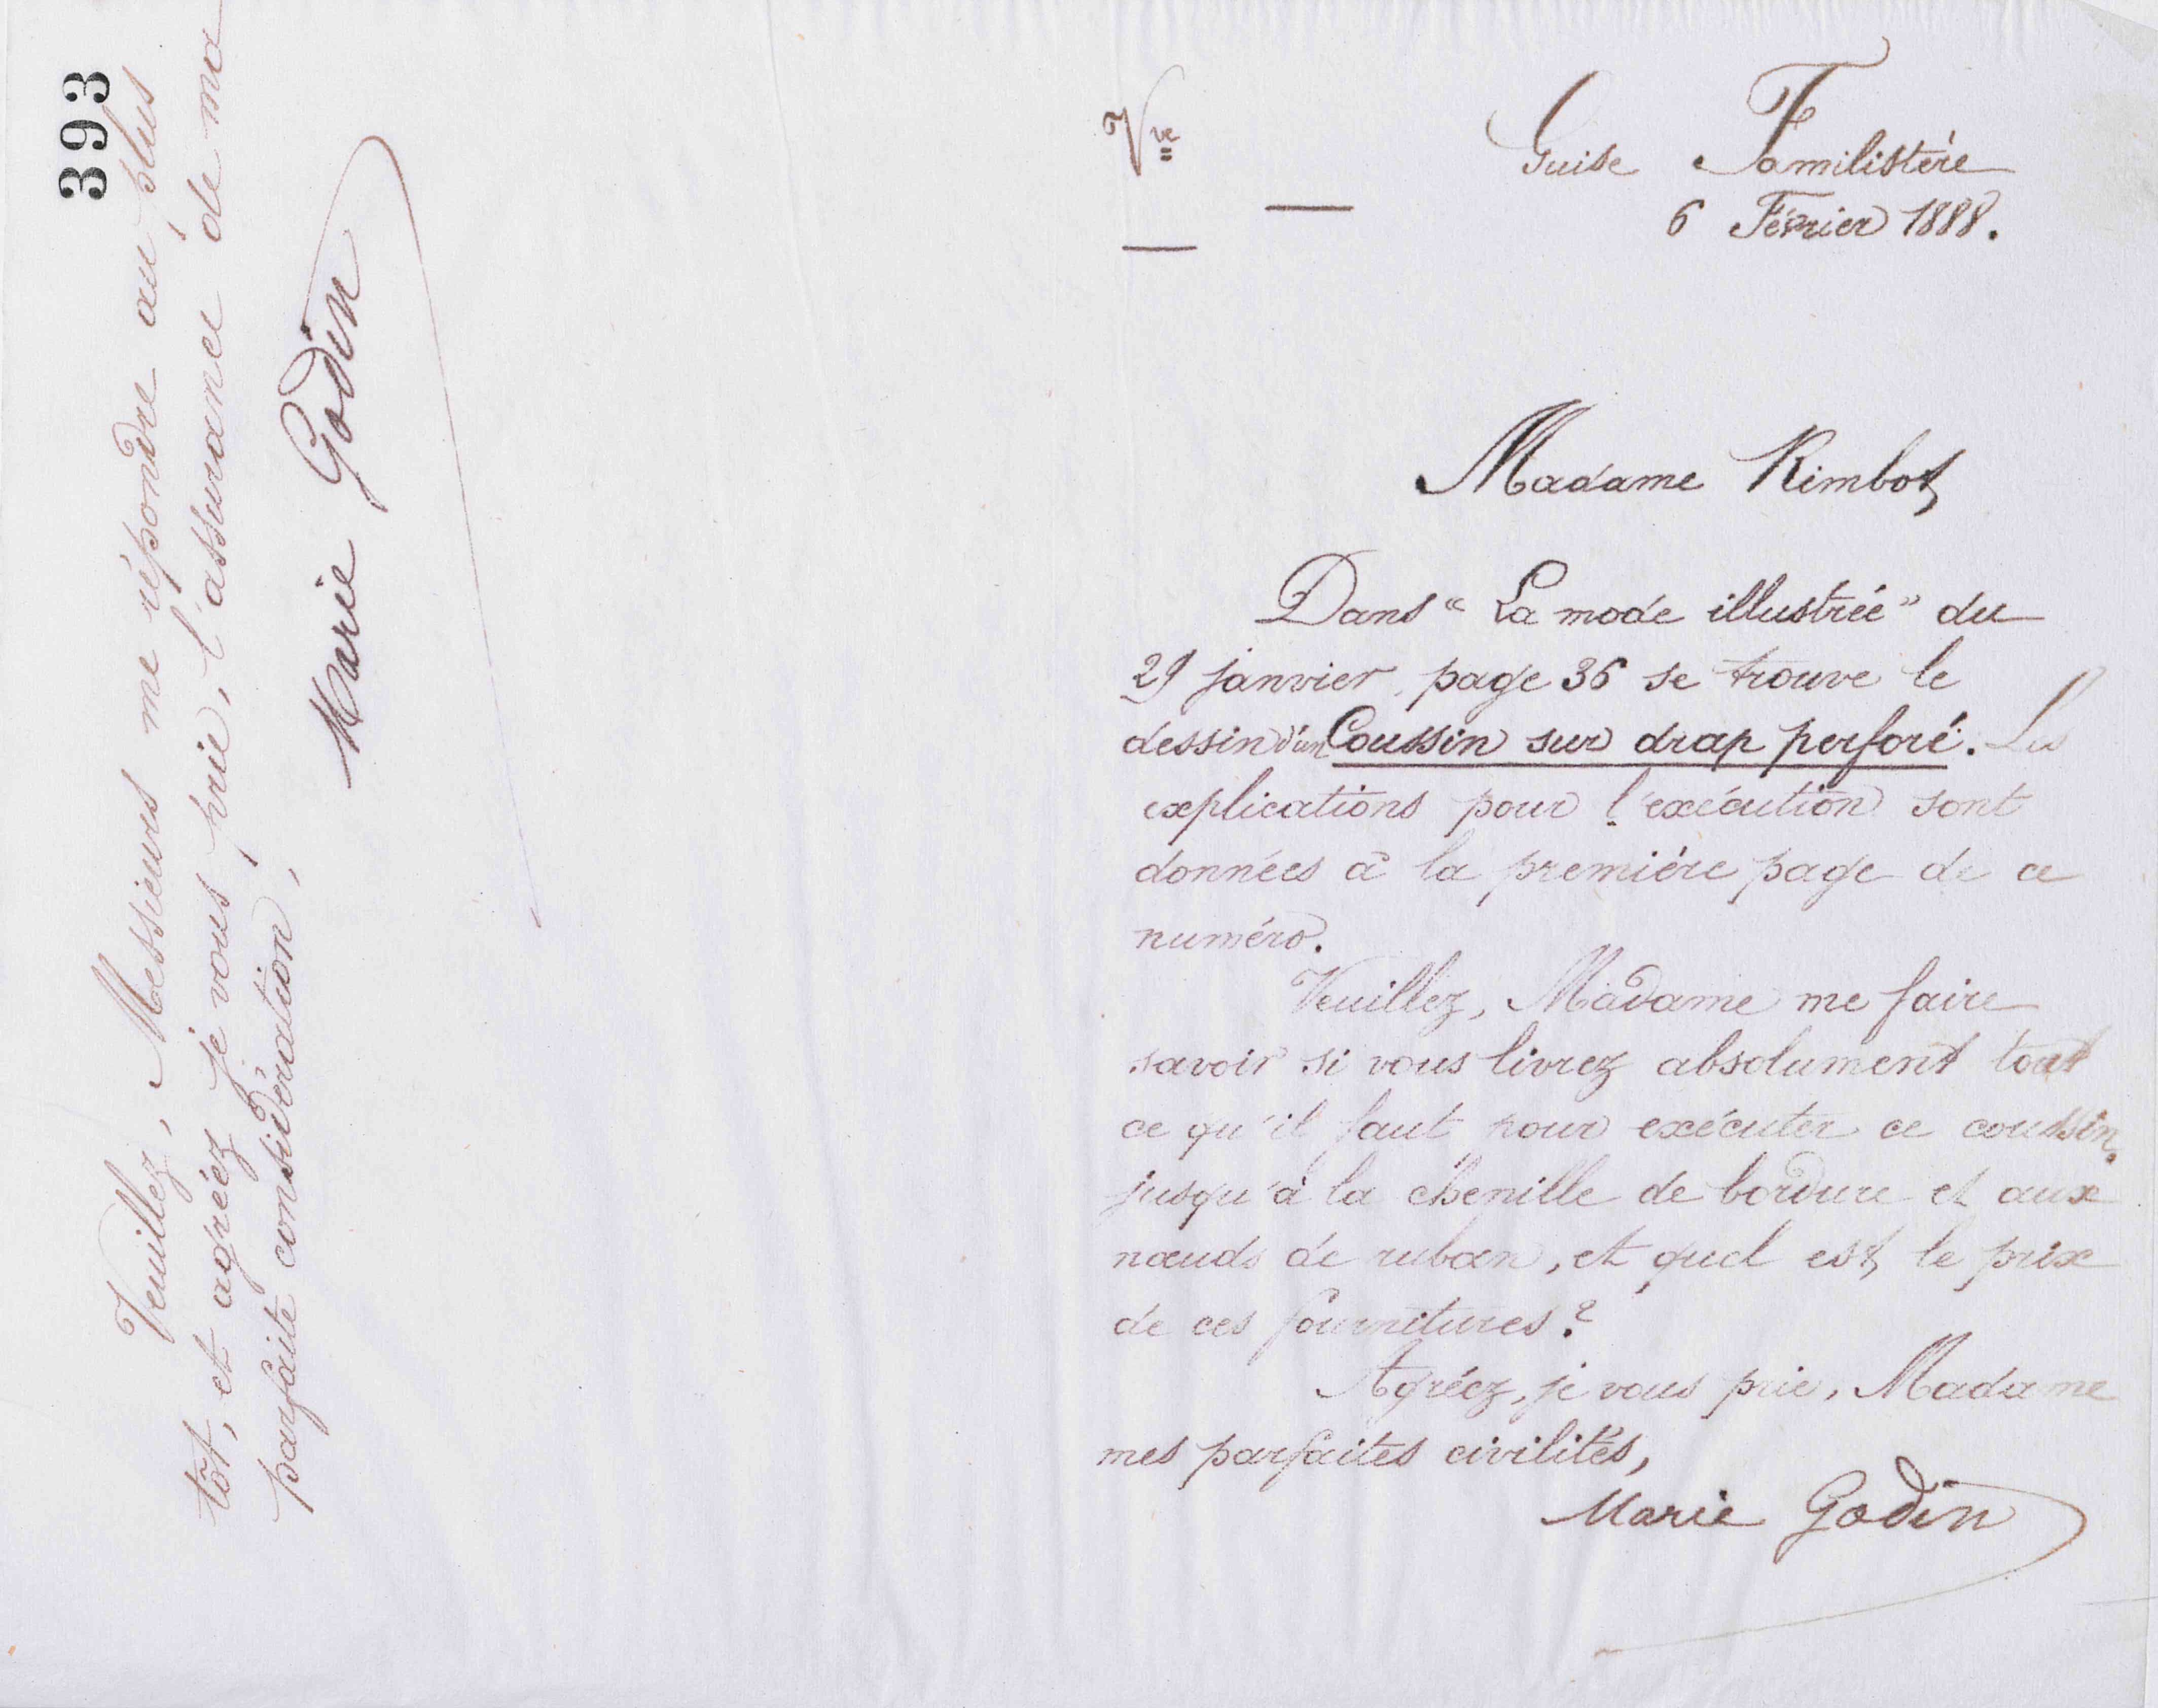 393
Veuillez, Messieurs me répondre au plus
tôt, et agréez je vous prie, l'assurance de ma
parfaite considération,
Marie Godin
Vve
Guise Familistère
6 Février 1888.
Madame Rimbot
Dans "La mode illustrée" du
29 janvier, page 36 se trouve le
dessin d'un Coussin sur drap perforé. Les
explications pour l'exécution sont
données à la première page de ce
numéro.
Veuillez, Madame me faire
savoir si vous livrez absolument tout
ce qu'il faut pour exécuter ce coussin,
jusqu'à la chenille de bordure et aux
nœuds de ruban, et quel est le prix
de ces fournitures?
Agréez, je vous prie, Madame
mes parfaites civilités,
Marie Godin